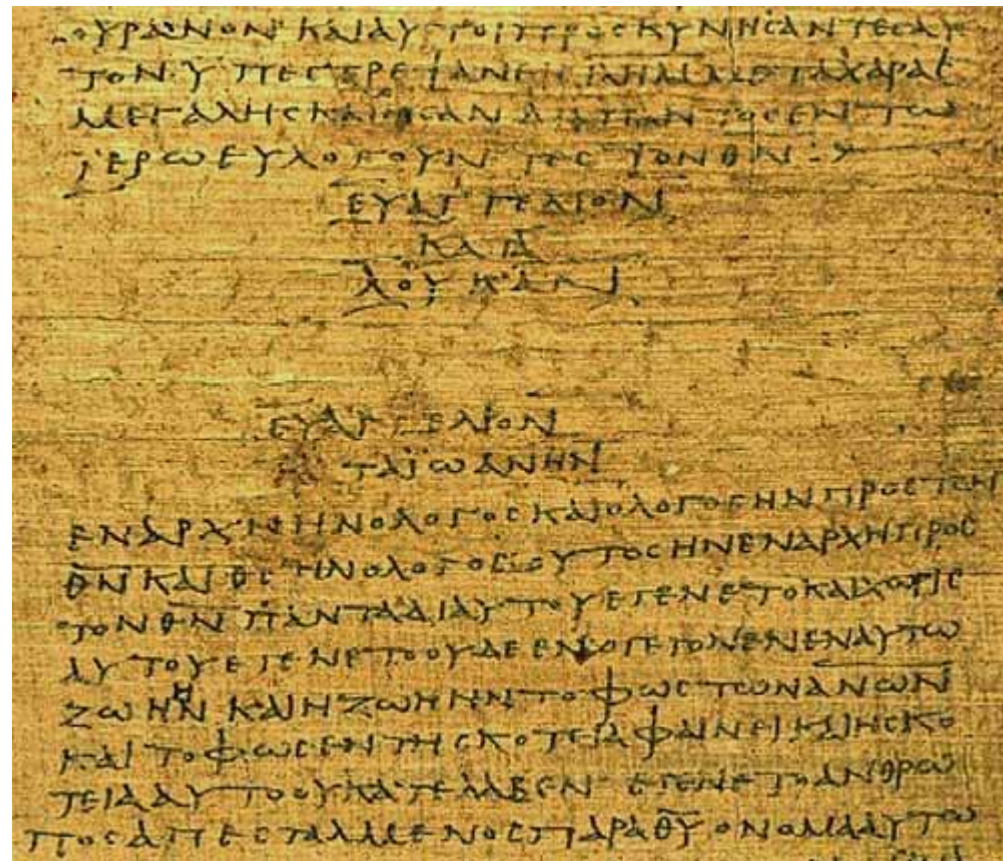 ΟΥΡΑΝΟΝ ΚΑΙ ΑΥΤΟΙ ΠΡΟϹΚΥΝΗϹΑΝΤΕϹ ΑΥ
ΤΟΝ ΥΠΕϹΤΡΕΨΑΝ ΕΙϹ Ι̅Η̅Λ̅Μ̅ ΜΕΤΑ ΧΑΡΑϹ
ΜΕΓΑΛΗϹ ΚΑΙ ΗϹΑΝ ΔΙΑ ΠΑΝΤΟϹ ΕΝ ΤΩ
ΙΕΡΩ ΕΥΛΟΓΟΥΝΤΕϹ ΤΟΝ Θ̅Ν̅
ΕΥΑΓΓΕΛΙΟΝ
ΚΑΤΑ
ΛΟΥΚΑΝ
ΕΥΑΓΓΕΛΙΟΝ
ΚΑΤΑ ΙΩΑΝΗΝ
ΕΝ ΑΡΧΗ ΗΝ Ο ΛΟΓΟϹ ΚΑΙ Ο ΛΟΓΟϹ ΗΝ ΠΡΟϹ ΤΟΝ
Θ̅Ν̅ ΚΑΙ Θ̅Ϲ̅ ΗΝ Ο ΛΟΓΟϹ ΟΥΤΟϹ ΗΝ ΕΝ ΑΡΧΗ ΠΡΟϹ
ΤΟΝ Θ̅Ν̅ ΠΑΝΤΑ ΔΙ ΑΥΤΟΥ ΕΓΕΝΕΤΟ ΚΑΙ ΧΩΡΙϹ
ΑΥΤΟΥ ΕΓΕΝΕΤΟ ΟΥΔΕ ΕΝ Ο ΓΕΓΟΝΕΝ ΕΝ ΑΥΤΩ
ΖΩΗ ΗΝ ΚΑΙ Η ΖΩΗ ΗΝ ΤΟ ΦΩϹ ΤΩΝ Α̅Ν̅Ω̅Ν̅
ΚΑΙ ΤΟ ΦΩϹ ΕΝ ΤΗ ϹΚΟΤΕΙΑ ΦΑΙΝΕΙ ΚΑΙ Η ϹΚΟ
ΤΕΙΑ ΑΥΤΟ ΟΥ ΚΑΤΕΛΑΒΕΝ ΕΓΕΝΕΤΟ ΑΝΘΡΩ
ΠΟϹ ΑΠΕϹΤΑΛΜΕΝΟϹ ΠΑΡΑ Θ̅Υ̅ ΟΝΟΜΑ ΑΥΤΩ